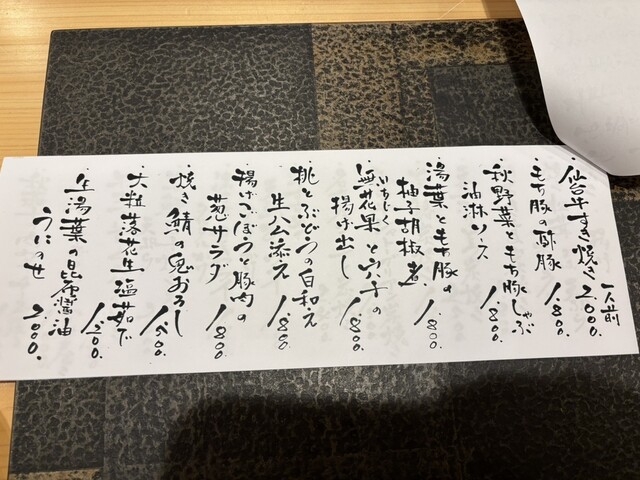 ・仙台牛すき焼き 一人前 2.000.
・もち豚の酢豚 1.800.
・秋野菜ともち豚しゃぶ
油淋ソース 1.800.
・湯葉ともち豚の
柚子胡椒煮 1.800.
・無花果と穴子の
いちじく
揚げ出し 1.800.
・桃とぶどうの白和え
生ハム添え 1.800.
・揚げごぼうと豚肉の
葱サラダ 1.800.
・焼き鯖の鬼おろし 1.500.
・大粒落花生塩茹で 1.200.
・生湯葉の昆布醤油
うにのせ 2.000.